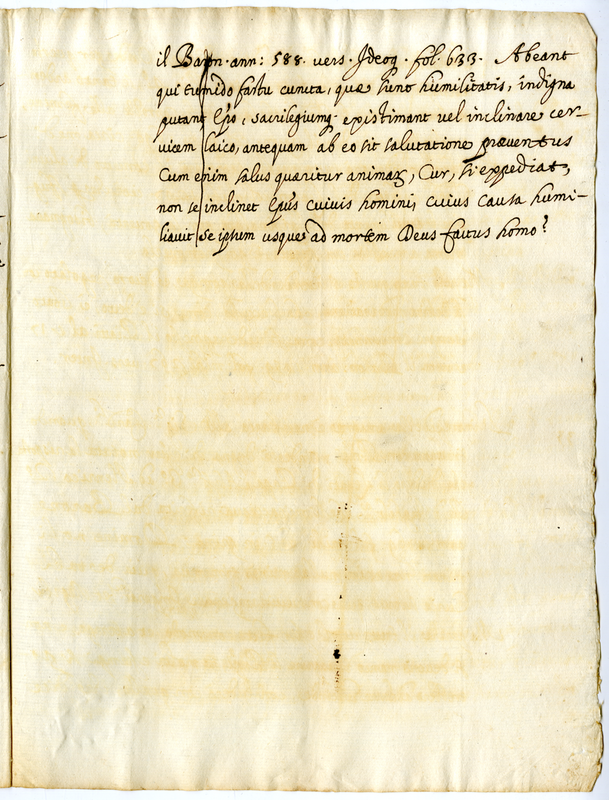 il Baron. ann: 588. vers. Ideoq. fol. 633. Abeant
qui tumido fastu cuncta, quæ sunt humilitatis, indigna
putant Epo, sacrilegiumq. existimant vel inclinare cer-
vicem laico, antequam ab eo sit salutatione præventus
Cum enim salus quæritur animaꝝ, Cur, si expediat,
non se inclinet Epũs cuivis homini, cuius causa humi-
liavit se ipsum usque ad mortem Deus factus homo?